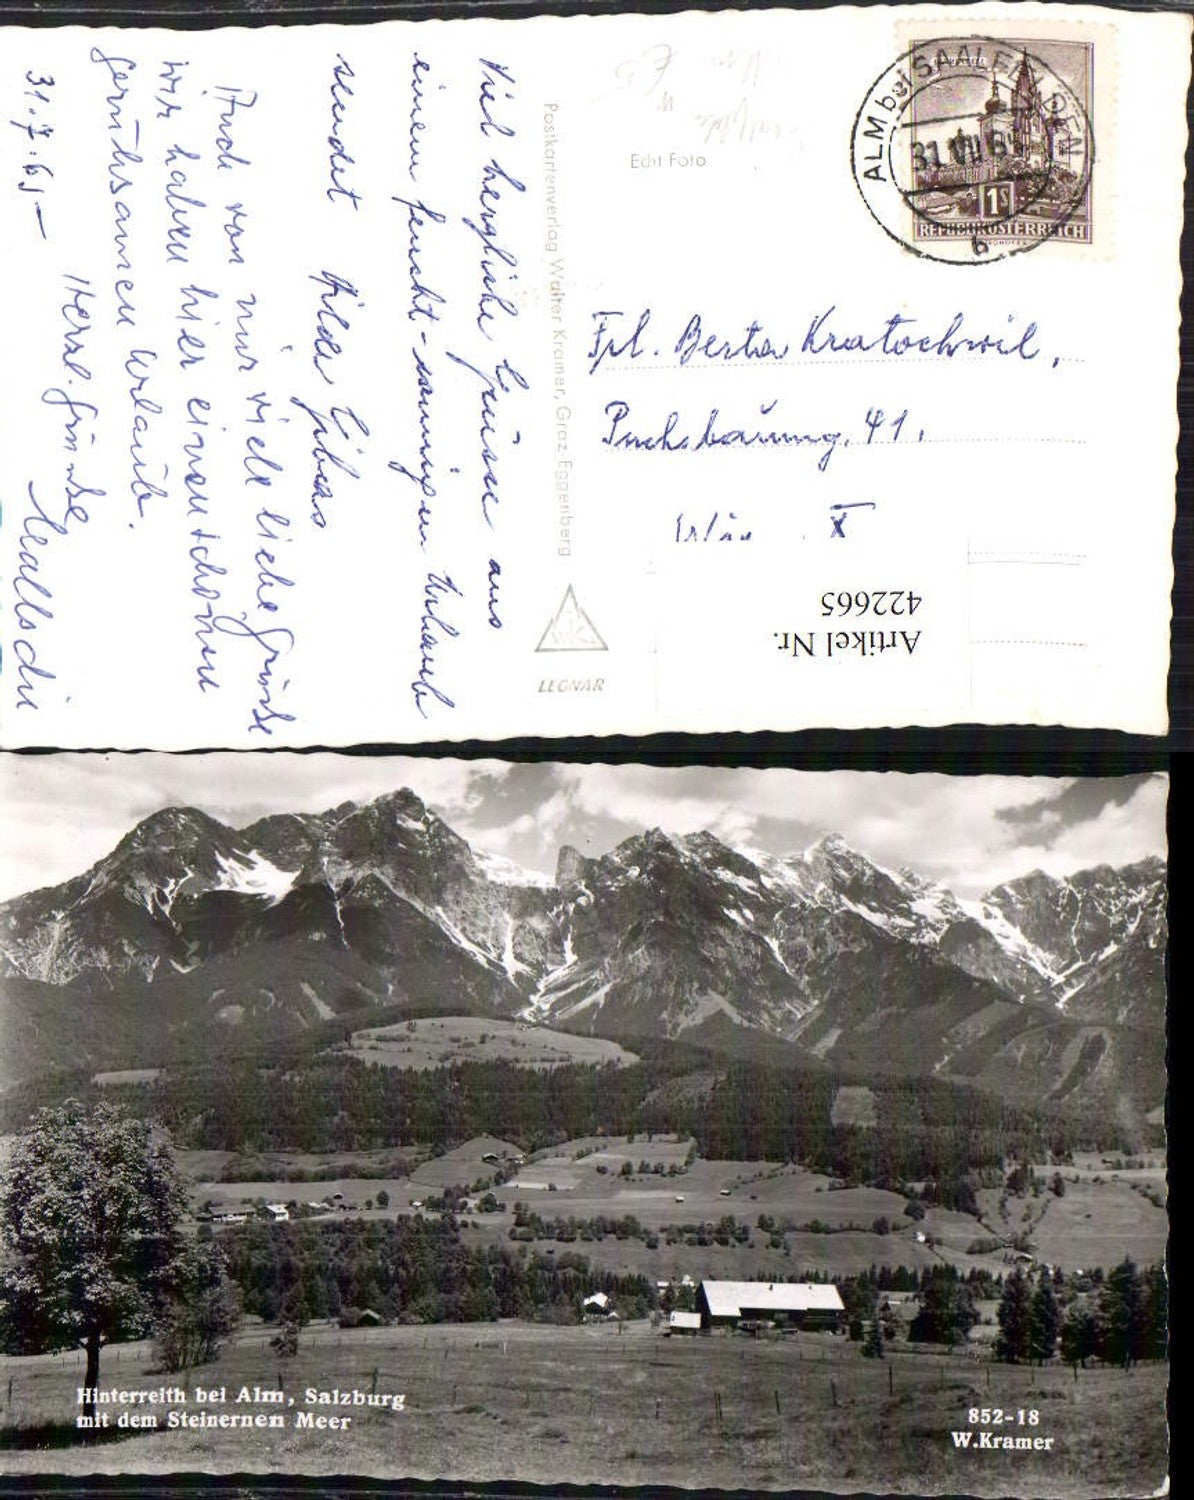 Viel herzliche Grüsse aus
einem feucht-sonnigen Urlaub
sendet Hilde
Auch von mir viele liebe Grüße
wir haben hier einen schönen
geruhsamen Urlaub.
Herzl. Grüße
31.7.65-
Postkartenverlag Walter Kramer, Graz-Eggenberg
WK
LEGNAR
Echt Foto
ALM bei SAALFELDEN
31.VII.65
b
1S
REPUBLIK ÖSTERREICH
Frl. Berta Kratochwil,
41.
X
Artikel Nr.
422665
Hinterreith bei Alm, Salzburg
mit dem Steinernen Meer
852-18
W.Kramer